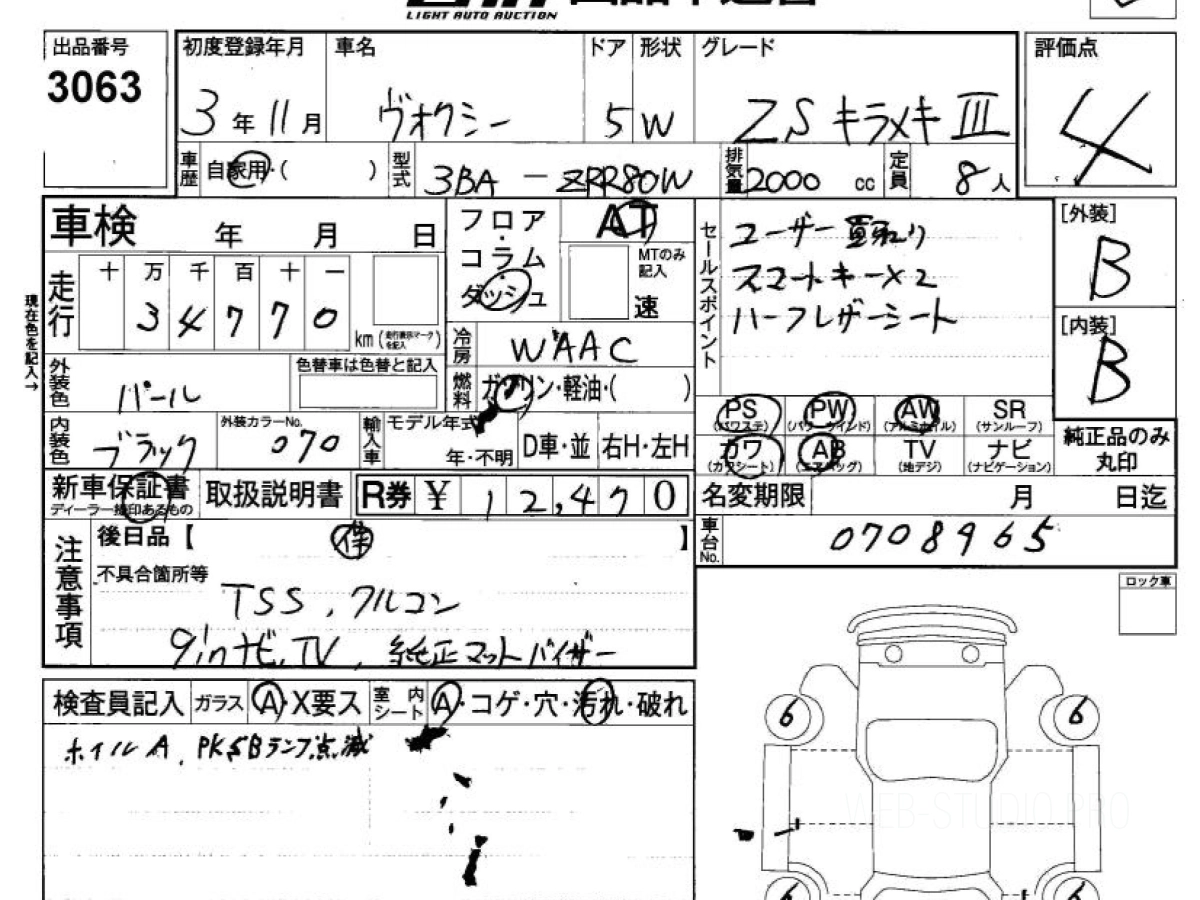 LIGHT AUTO AUCTION
出品番号
3063
初度登録年月 車名 ドア 形状 グレード
3年11月 ヴォクシー 5 W ZS キラメキⅢ
評価点
4
車歴 自家用・( ) 型式 3BA-ZRR80W 排気量 2000cc 定員 8人
車検 年 月 日
フロア・コラム ダッシュ
AT
MTのみ記入
速
走行 十 万 千 百 十 一
3 4 7 7 0 km (走行表示マークを記入)
現在色を記入→
外装色 パール
色替車は色替と記入
冷房 WAAC
燃料 ガソリン・軽油・( )
セールスポイント
ユーザー買取り
スマートキー×2
ハーフレザーシート
[外装]
B
[内装]
B
内装色 ブラック 外装カラーNo. 070
輸入車 モデル年式 年・不明 D車・並 右H・左H
PS (パワステ) PW (パワーウインド) AW (アルミホイル) SR (サンルーフ)
カワ (カワシート) AB (エアバッグ) TV (地デジ) ナビ (ナビゲーション)
純正品のみ丸印
新車保証書 取扱説明書 R券 ¥ 12,470
ディーラー捺印あるもの
名変期限 月 日迄
車台No. 0708965
注意事項
後日品【 】
不具合箇所等
TSS、クルコン
9inナビ、TV、純正マットバイザー
検査員記入 ガラス A・X要ス 室内シート A・コゲ・穴・汚れ・破れ
ホイルA、PKSBランプ点滅
ロック車
6 6
WEB-STUDIO.PRO
6 6